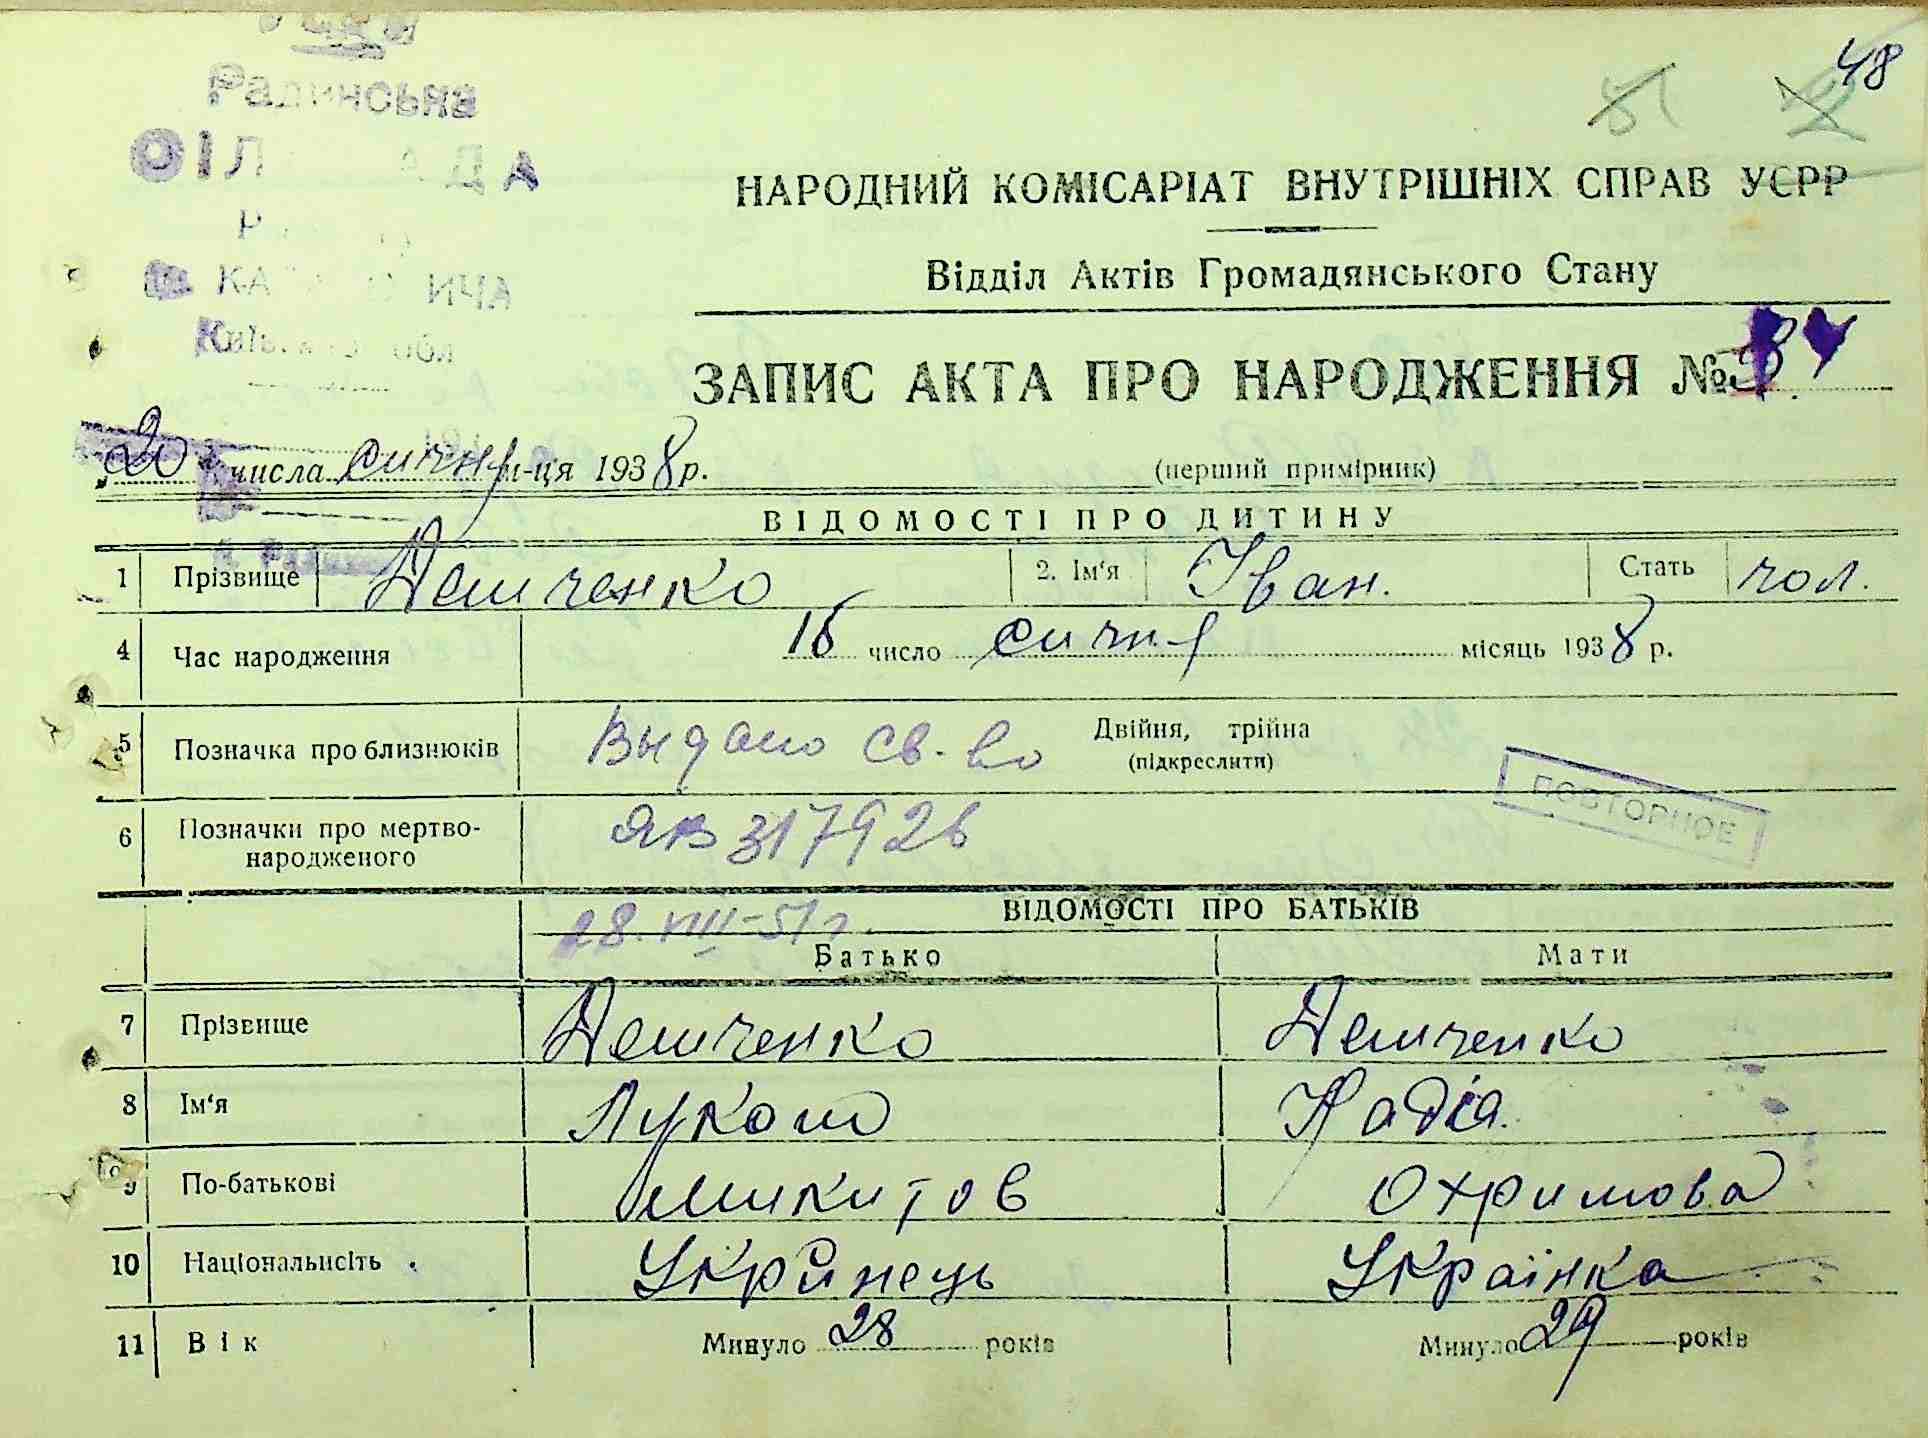 48
Радинська
НАРОДНИЙ КОМІСАРІАТ ВНУТРІШНІХ СПРАВ УСРР
Відділ Актів Громадянського Стану
ЗАПИС АКТА ПРО НАРОДЖЕННЯ №
20 числа січня м-ця 1938 р.
(перший примірник)
ВІДОМОСТІ ПРО ДИТИНУ
1 Прізвище Демченко 2. Ім'я Іван. Стать чол.
4 Час народження 16 число січня місяць 1938 р.
5 Позначка про близнюків Выдано св-во Двійня, трійна
(підкреслити)
ПОВТОРНОЕ
6 Позначки про мертво-
народженого ЯВ 317926
28.VIII-51 г.
ВІДОМОСТІ ПРО БАТЬКІВ
Батько Мати
7 Прізвище Демченко Демченко
8 Ім'я Надія.
9 По-батькові Микитов Охримова
10 Національнсіть Українець Українка
11 Вік Минуло 28 років Минуло 29 років